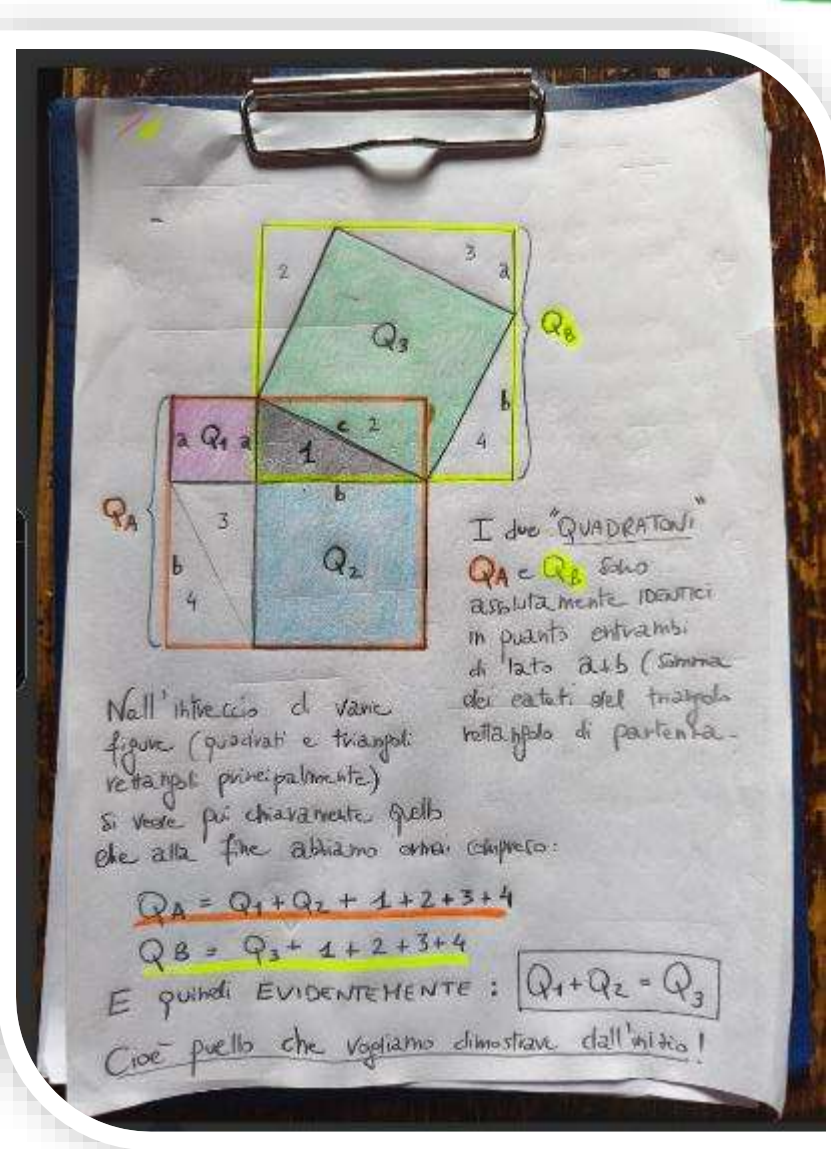 2
3
a
Q3
QB
b
4
a Q1 a
c 2
1
b
QA
3
b
4
Q2
I due "QUADRATONI"
QA e QB sono
assolutamente IDENTICI
in quanto entrambi
di lato a+b (somma
dei cateti del triangolo
rettangolo di partenza.
Nell'intreccio di varie
figure (quadrati e triangoli
rettangoli principalmente)
si vede più chiaramente quello
che alla fine abbiamo ormai compreso:
QA = Q1 + Q2 + 1 + 2 + 3 + 4
QB = Q3 + 1 + 2 + 3 + 4
E quindi EVIDENTEMENTE : Q1 + Q2 = Q3
Cioè quello che vogliamo dimostrare dall'inizio!